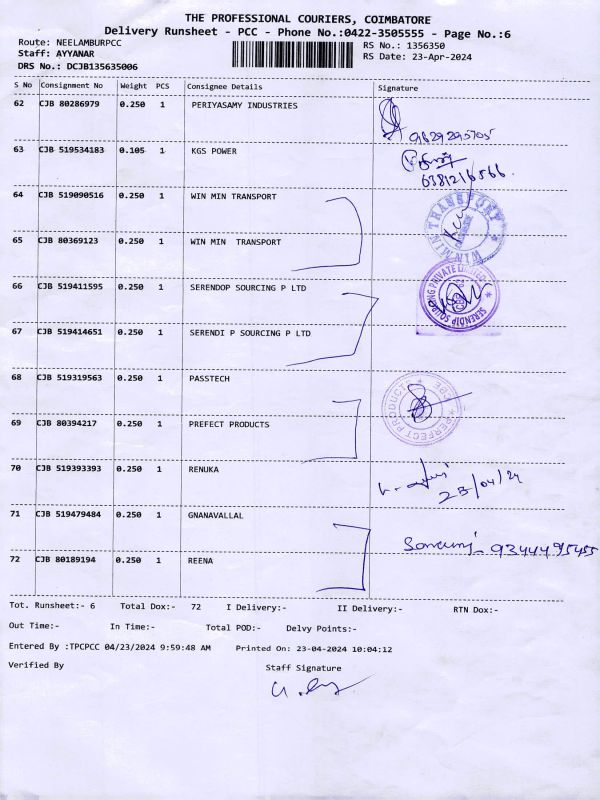 THE PROFESSIONAL COURIERS, COIMBATORE
Delivery Runsheet - PCC - Phone No.:0422-3505555 - Page No.:6
Route: NEELAMBURPCC
RS No.: 1356350
Staff: AYYANAR
RS Date: 23-Apr-2024
DRS No.: DCJB135635006
S No Consignment No Weight PCS Consignee Details Signature
62 CJB 80286979 0.250 1 PERIYASAMY INDUSTRIES
9629295705
63 CJB 519534183 0.105 1 KGS POWER
6381216566
64 CJB 519090516 0.250 1 WIN MIN TRANSPORT
WIN MIN TRANSPORT
65 CJB 80369123 0.250 1 WIN MIN TRANSPORT
66 CJB 519411595 0.250 1 SERENDOP SOURCING P LTD
SERENDIP SOURCING PRIVATE LIMITED
67 CJB 519414651 0.250 1 SERENDI P SOURCING P LTD
68 CJB 519319563 0.250 1 PASSTECH
PERFECT PRODUCTS
69 CJB 80394217 0.250 1 PREFECT PRODUCTS
70 CJB 519393393 0.250 1 RENUKA
23/04/24
71 CJB 519479484 0.250 1 GNANAVALLAL
9344495455
72 CJB 80189194 0.250 1 REENA
Tot. Runsheet:- 6 Total Dox:- 72 I Delivery:- II Delivery:- RTN Dox:-
Out Time:- In Time:- Total POD:- Delvy Points:-
Entered By :TPCPCC 04/23/2024 9:59:48 AM Printed On: 23-04-2024 10:04:12
Verified By Staff Signature